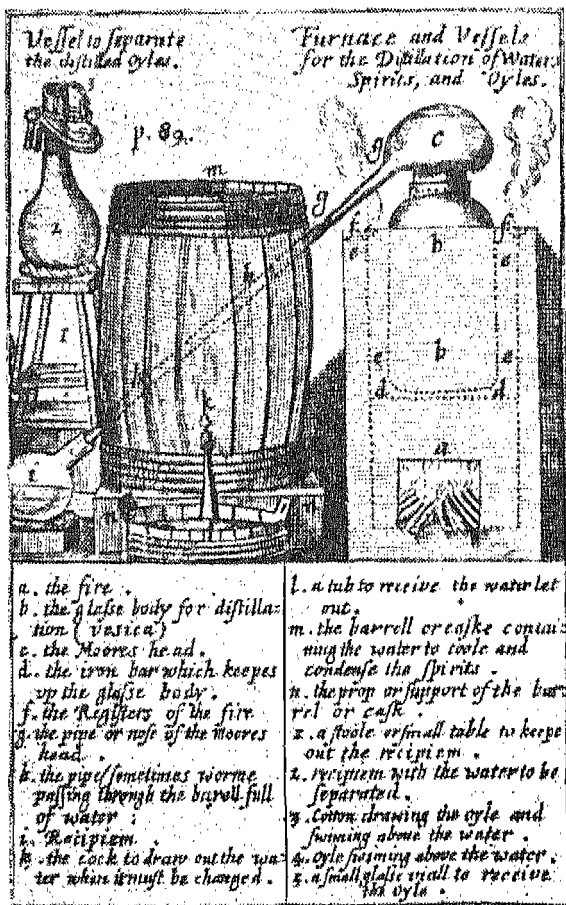 Vessel to separate
the distilled Oyles.
Furnace and Vessels
for the Distillation of Water,
Spirits, and Oyles.
p. 89.
3
m
g
c
g
f
f
e
e
b
2
h
b
e
e
1
h
d
d
k
a
i
n
n
l
a. the fire.
b. the glasse body for distilla-
tion (vesica)
c. the Moores head.
d. the iron bar which keepes
vp the glasse body.
f. the Registers of the fire
g. the pipe or nose of the moores
head.
h. the pipe sometimes worme
passing through the barrell full
of water:
i. Recipiem.
k. the cock to draw out the wa-
ter when it must be changed.
l. a tub to receive the water let
out.
m. the barrell or caske contai-
ning the water to coole and
condense the spirits.
n. the prop or support of the bar-
rel or cask.
z. a stoole or small table to keepe
out the recipiem.
2. recipiem with the water to be
separated.
3. Cotton drawing the oyle and
swiming above the water.
4. Oyle swiming above the water.
5. a small glasse viall to receive
the Oyle.